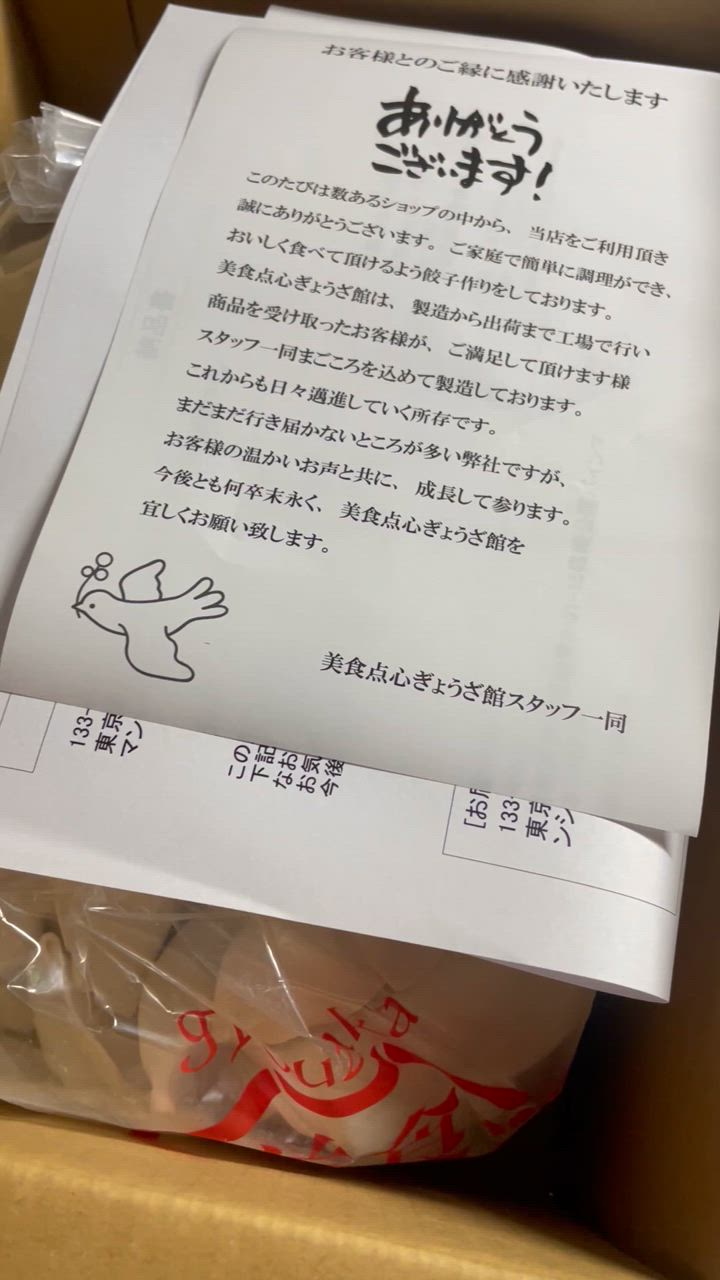 お客様とのご縁に感謝いたします
ありがとう
ございます!
このたびは数あるショップの中から、当店をご利用頂き
誠にありがとうございます。ご家庭で簡単に調理ができ、
おいしく食べて頂けるよう餃子作りをしております。
美食点心ぎょうざ館は、製造から出荷まで工場で行い
商品を受け取ったお客様が、ご満足して頂けます様
スタッフ一同まごころを込めて製造しております。
これからも日々邁進していく所存です。
まだまだ行き届かないところが多い弊社ですが、
お客様の温かいお声と共に、成長して参ります。
今後とも何卒末永く、美食点心ぎょうざ館を
宜しくお願い致します。
美食点心ぎょうざ館スタッフ一同
133-
東京
マン
この
下記
なお
お気
今後
[お
133-
東京
ンシ